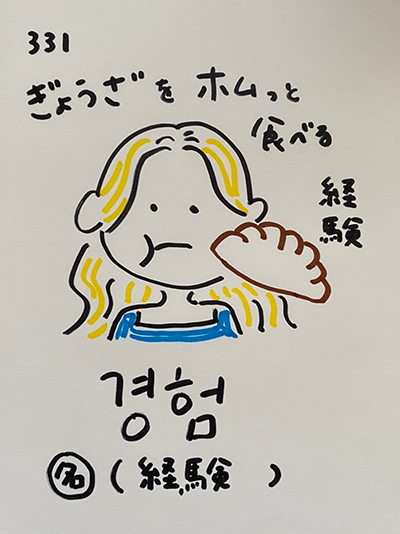 331
ぎょうざを ホムっと
食べる
経
験
경험
名 (経験 )